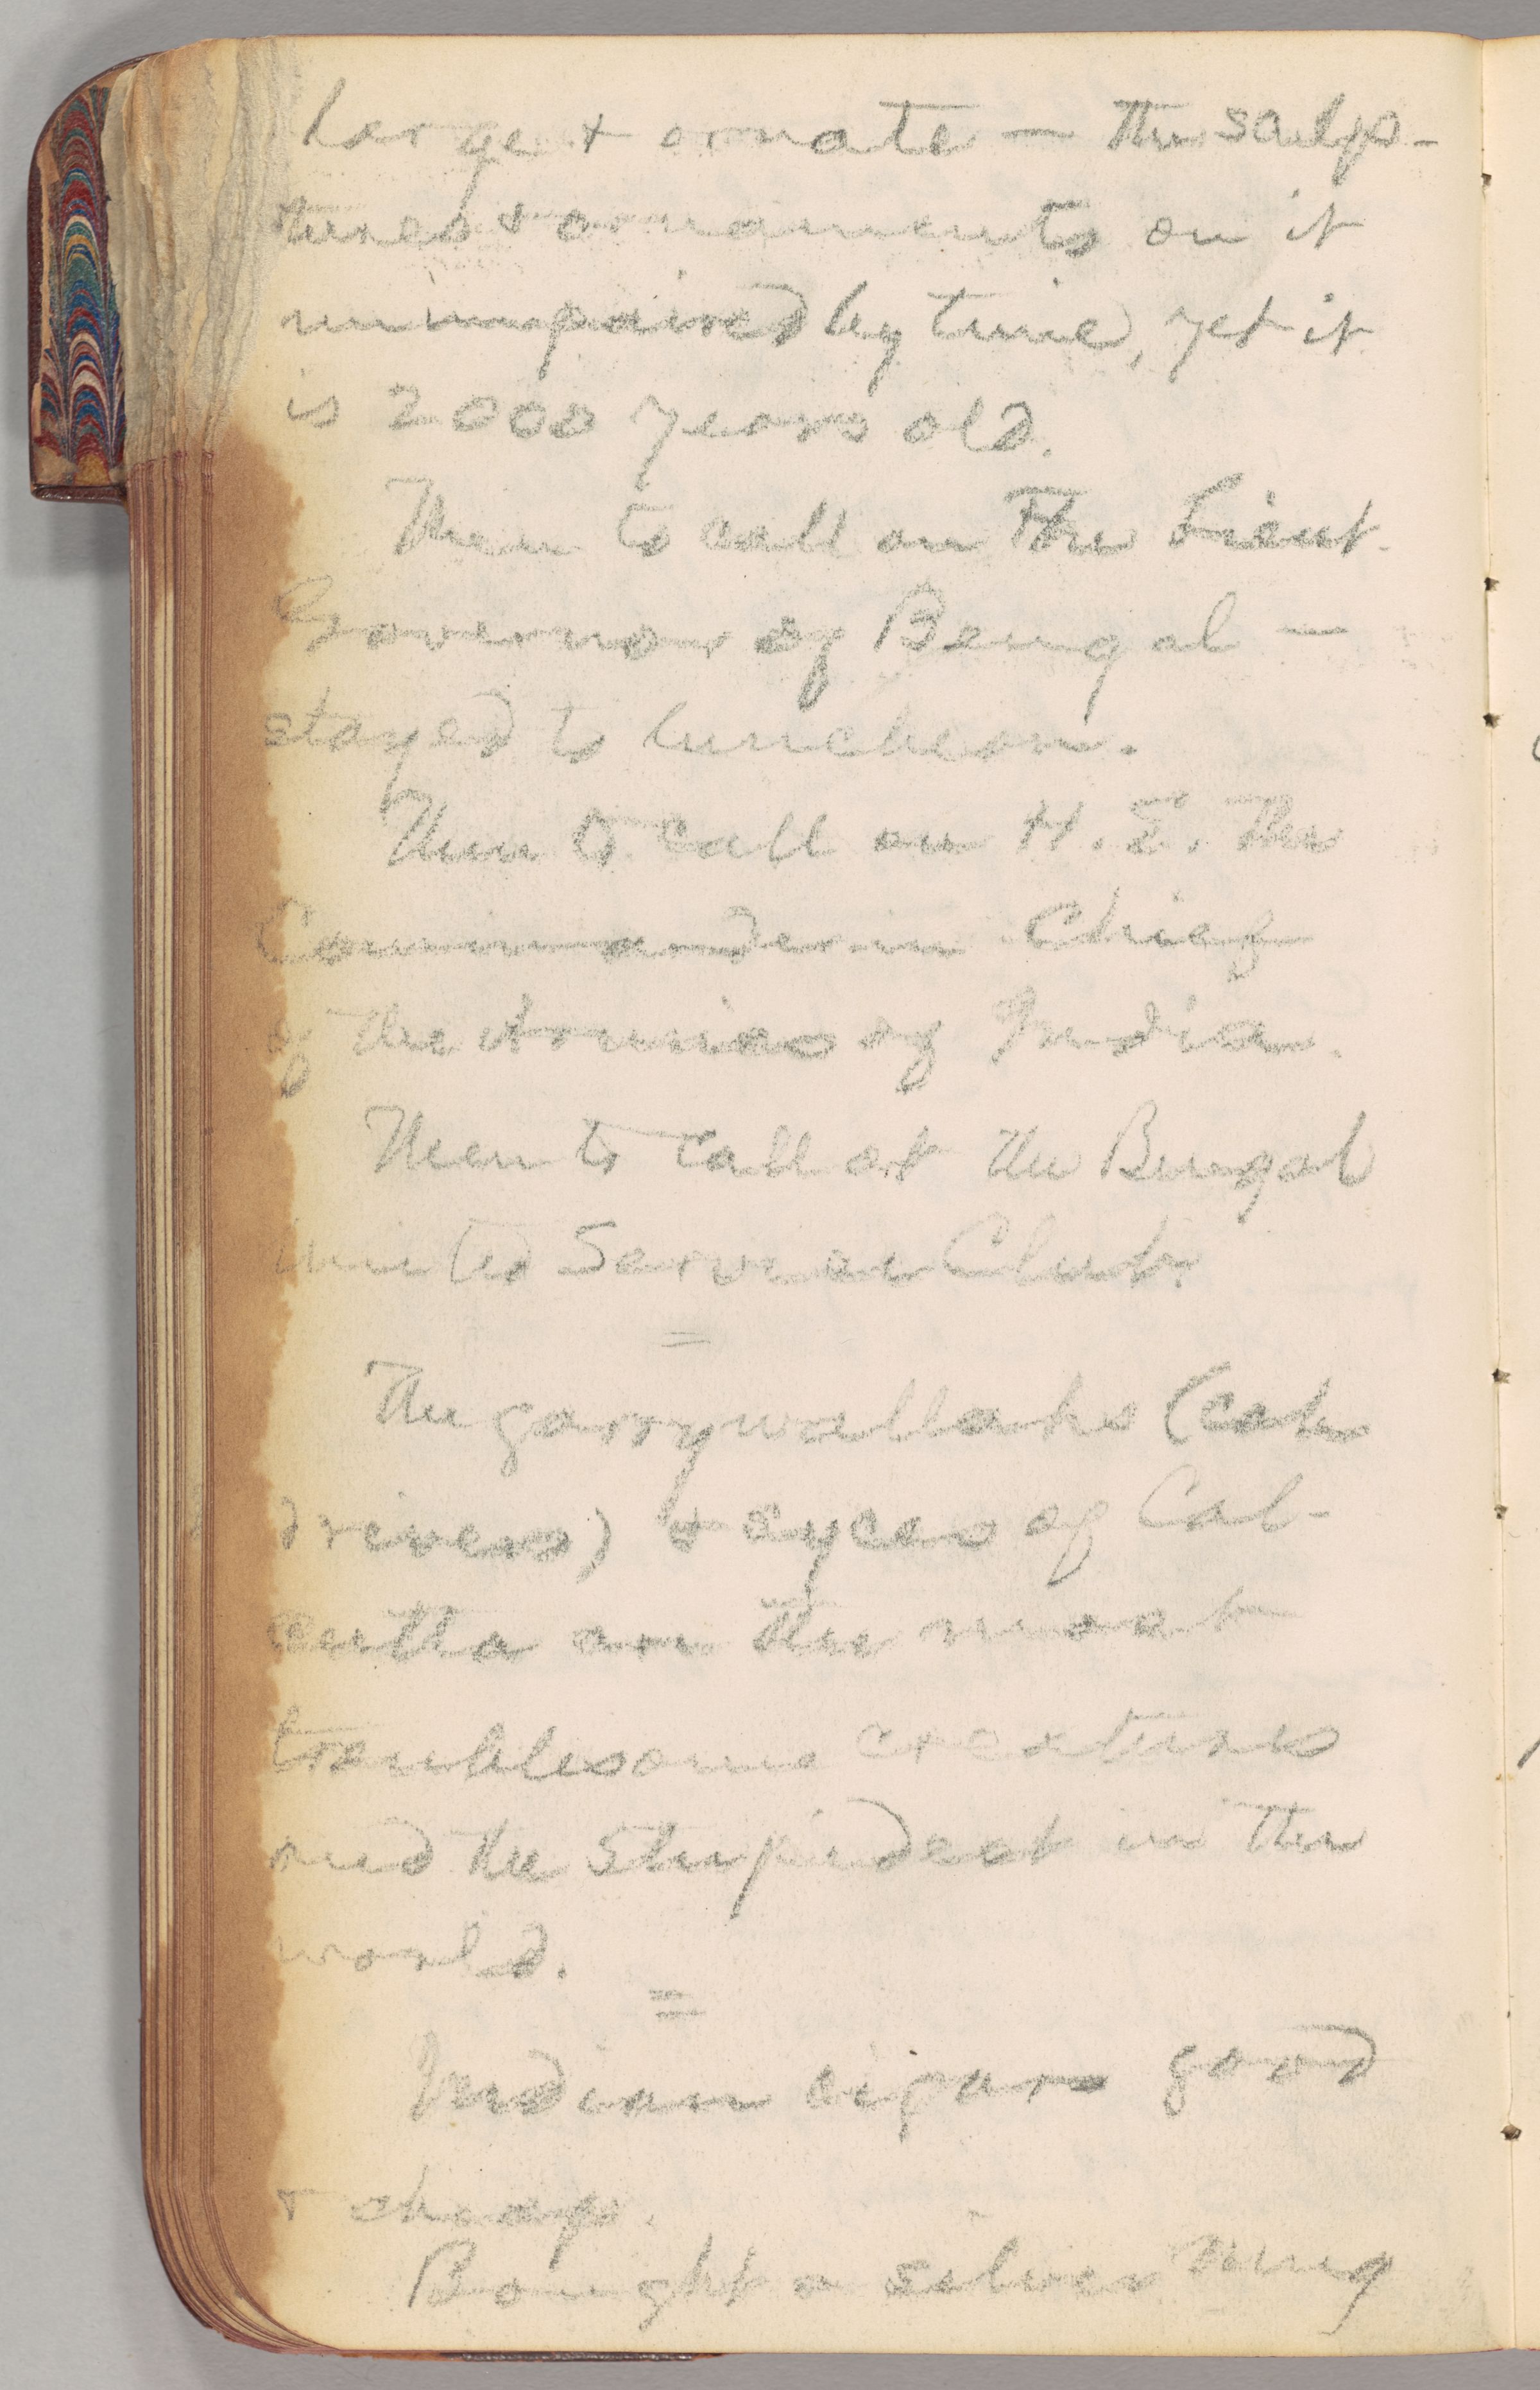 large & ornate — the sculp-
tures & ornaments on it
unimpaired by time, yet it
is 2000 years old.
Then to call on the Lieut.
Governor of Bengal —
stayed to luncheon.
Then to call on H.E. the
Commander-in Chief
of the Armies of India.
Then to call at the Bengal
United Service Club.
=
The garrywallahs (cab
drivers) & syces of Cal-
cutta are the most
troublesome creatures
and the stupidest in the
world.
=
Indian cigars good
& cheap.
Bought a silver mug